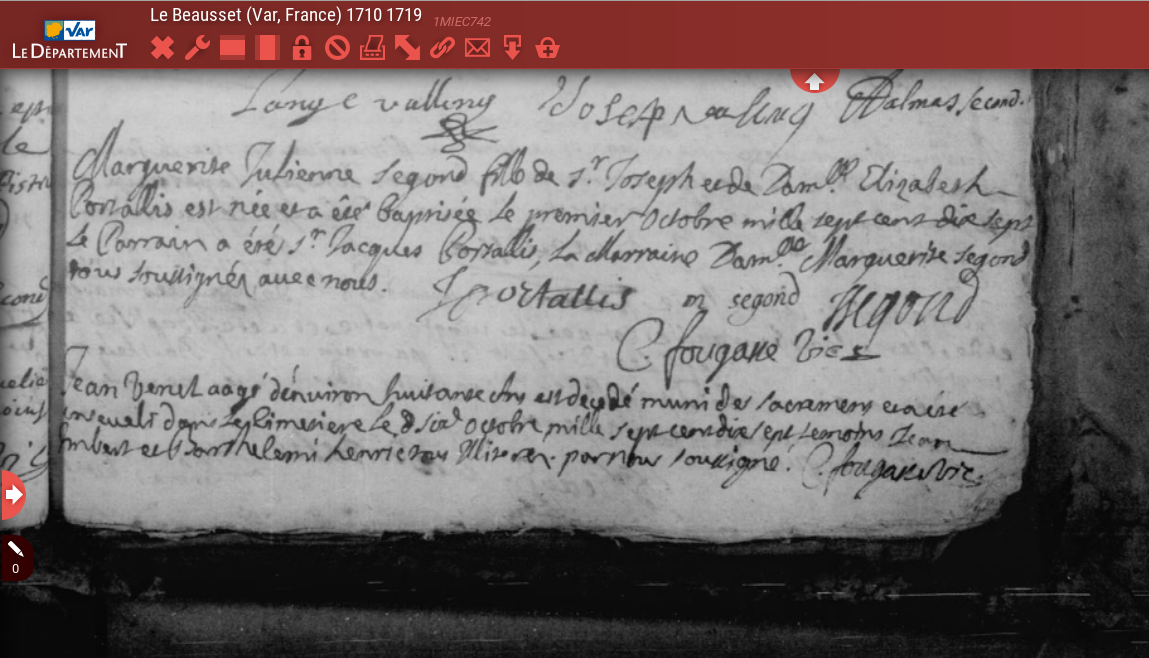 Le Beausset (Var, France) 1710 1719
1MIEC742
VAR
LE DÉPARTEMENT
Joseph Dalmas second.
Marguerite Julienne Segond fille de s.r Joseph et de Dam.lle Elizabeth
Portallis est née et a été baptisée le premier octobre mille sept cent dix sept
Le Parrain a été s.r Jacques Portallis, La Marraine Dam.lle Marguerite segond
tous soussignés avec nous. JPortallis m segond Segond
C. fougasse vic.e
Jean aagé d'environ huitante ans est décédé muni des sacremens et a été
enseveli dans le simetiere le octobre mille sept cent dix sept temoins Jean
Imbert et Barthelemi henric tous par nous soussigné. C. fougasse vic.
0